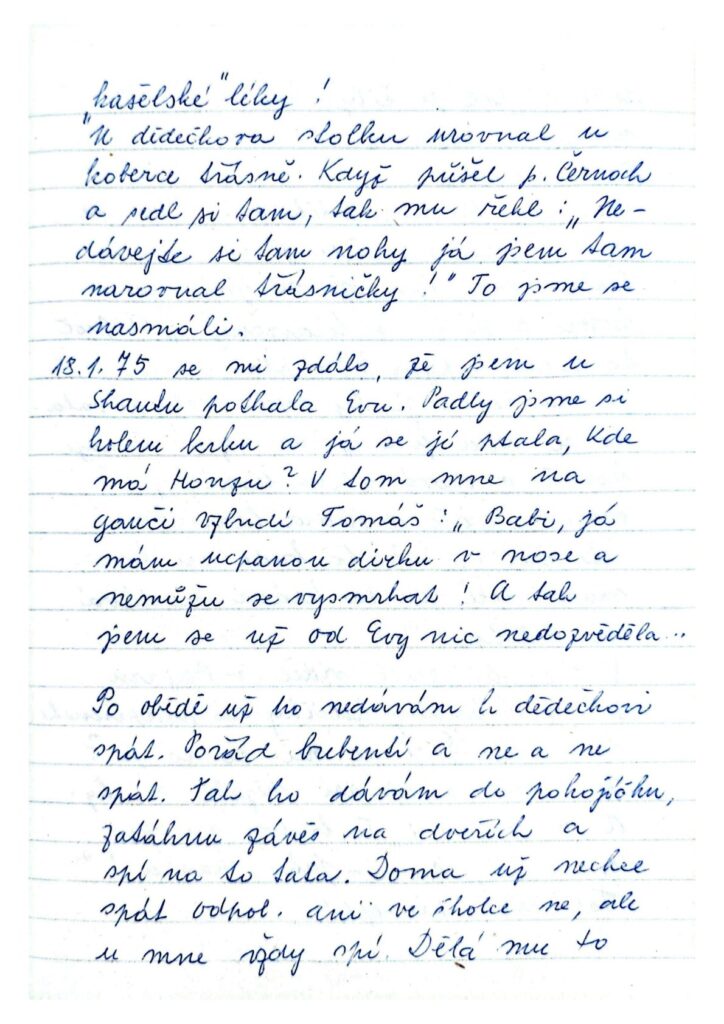 „kašélské" léky !
"U dědečkova stolku urovnal u
koberce třásně. Když přišel p. Černoch
a sedl si tam, tak mu řekl : „Ne-
dávejte si tam nohy já jsem tam
narovnal třásničky !" To jsme se
nasmáli.
18.1.75 se mi zdálo, že jsem u
Shautu potkala Evu. Padly jsme si
kolem krku a já se jí ptala, kde
má Honzu? V tom mne na
gauči vzbudí Tomáš : „ Babi, já
mám ucpanou dírku v nose a
nemůžu se vysmrkat ! A tak
jsem se už od Evy nic nedozvěděla...
Po obědě už ho nedávám k dědečkovi
spát. Pořád bubentí a ne a ne
spát. Tak ho dávám do pokojíčku,
zatáhnu závěs na dveřích a
spí na to tata. Doma už nechce
spát odpol. ani ve školce ne, ale
u mne vždy spí. Dělá mu to